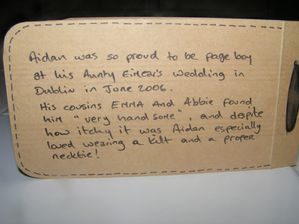 Aidan was so proud to be page boy
at his Aunty Eimear's wedding in
Dublin in June 2006.
His cousins EMMA and Abbie found
him "very handsome", and despite
how itchy it was Aidan especially
loved wearing a kilt and a proper
necktie!